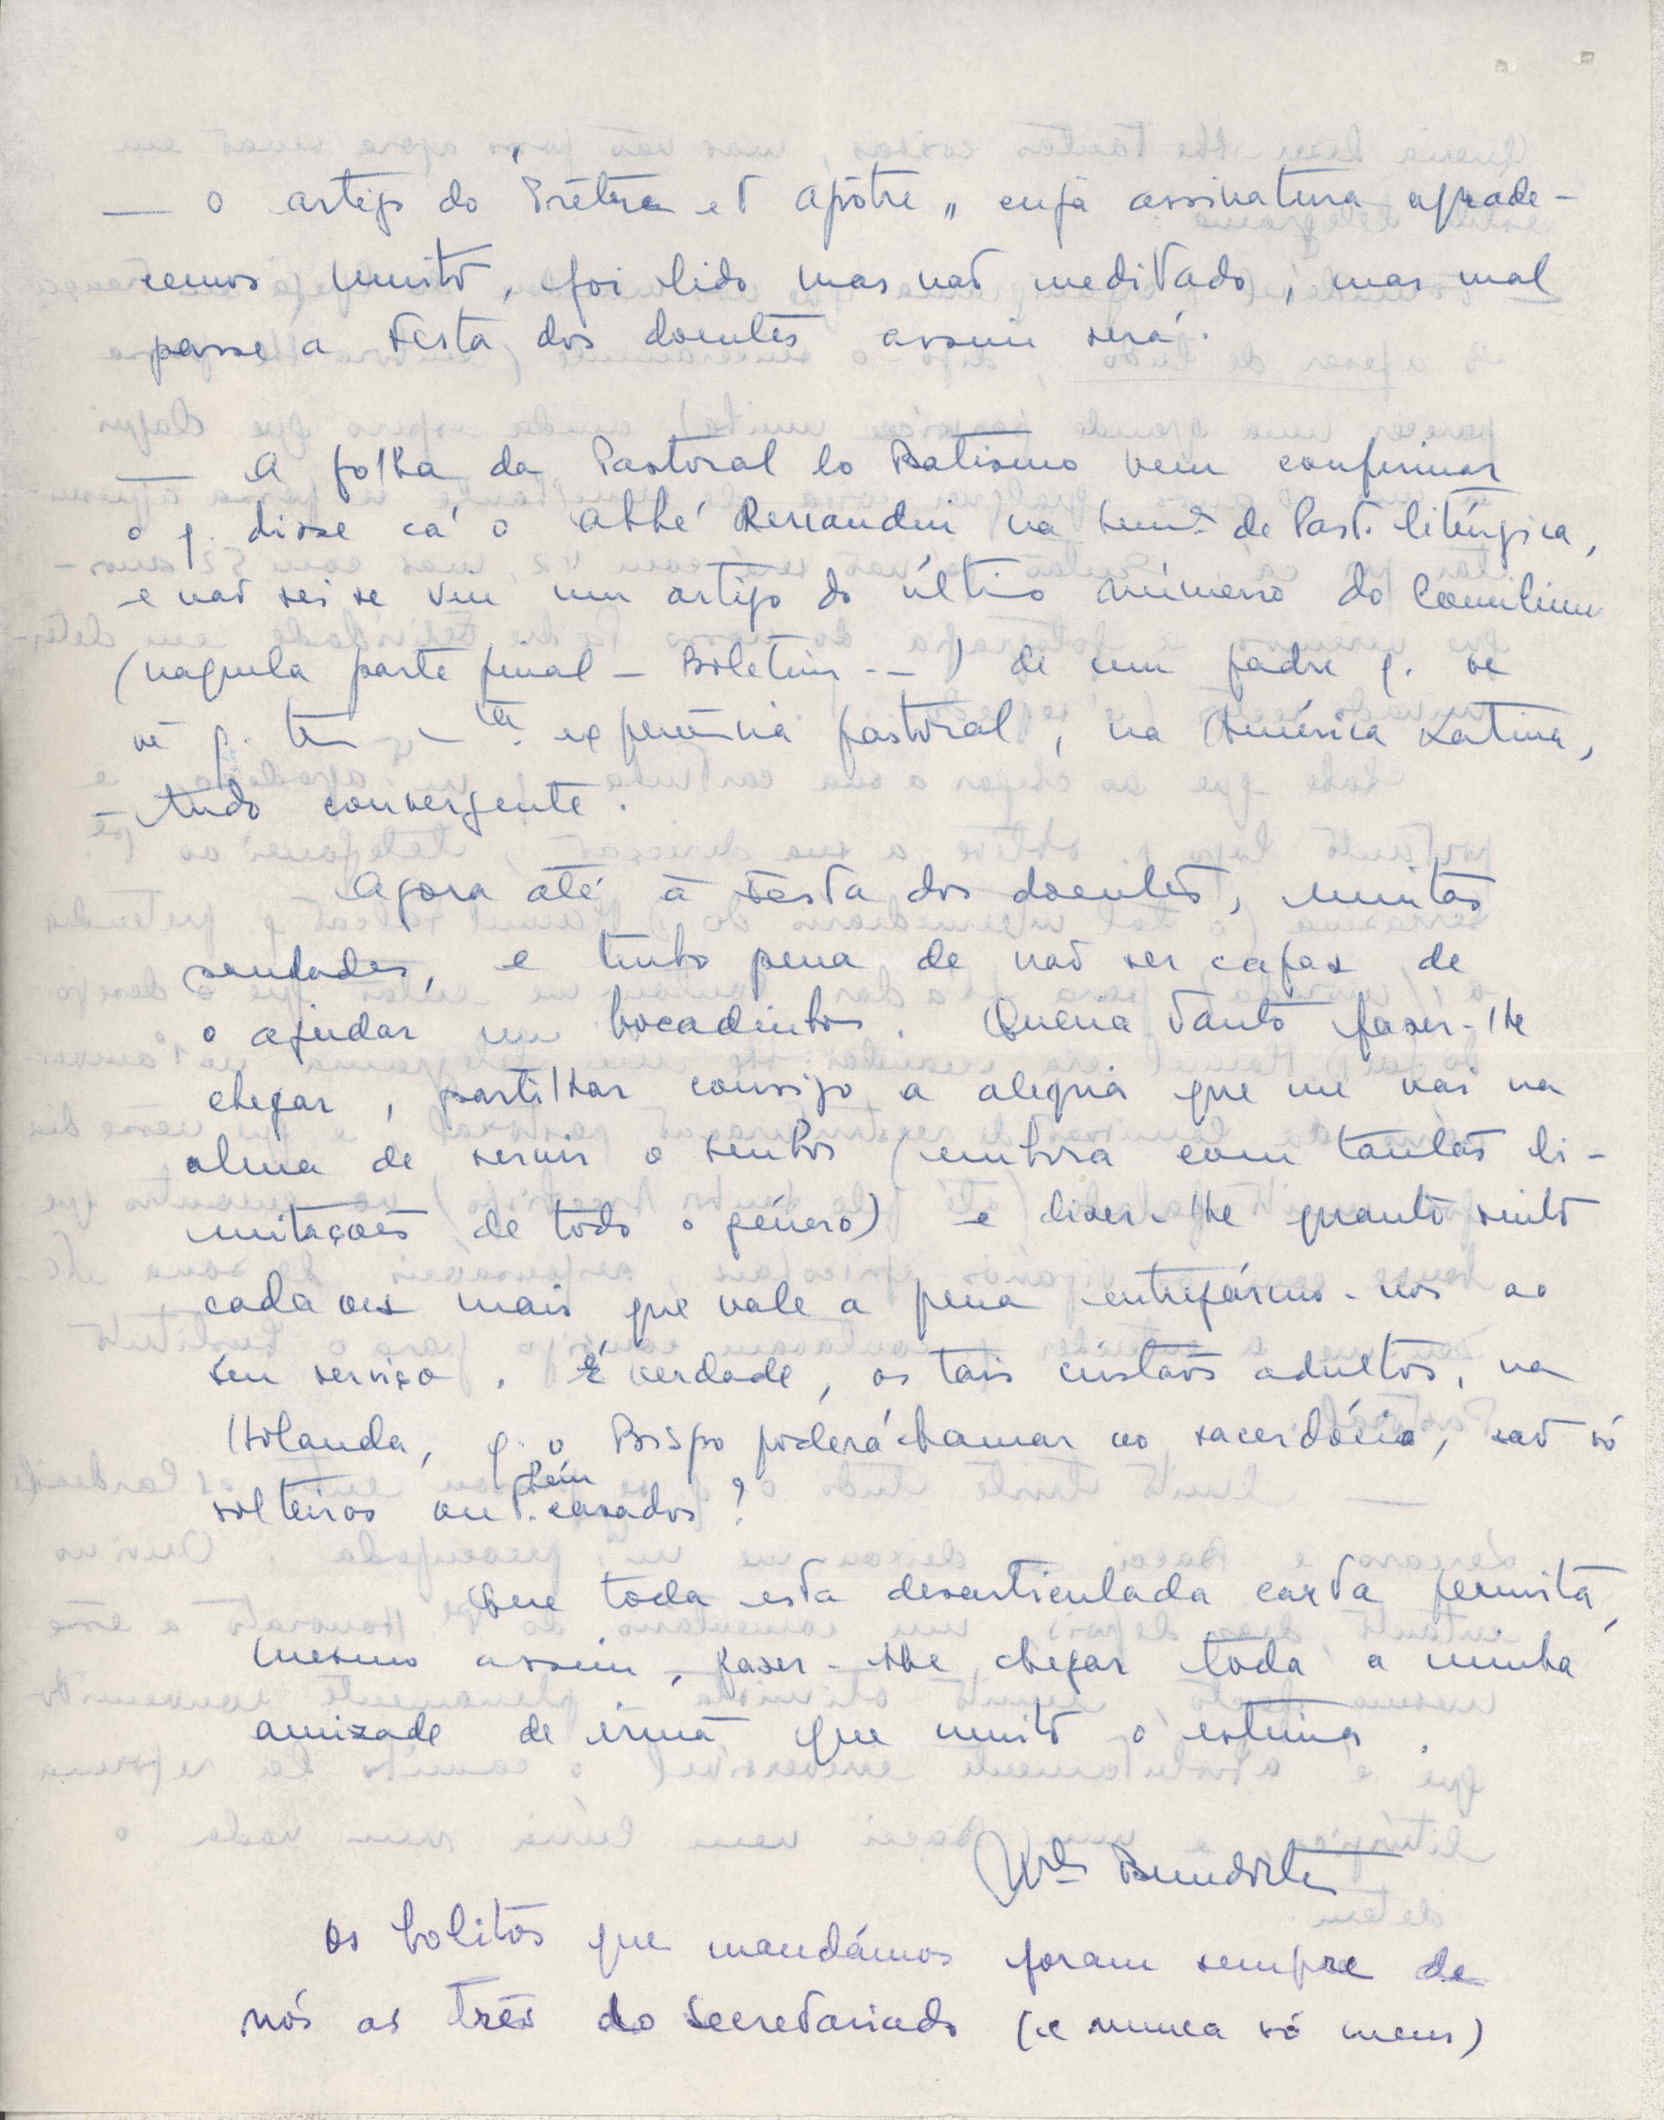 — O artigo do "Prêtre et Apôtre", cuja assinatura agrade-
cemos muito, foi lido mas não meditado, mas mal
passe a Festa dos doentes assim será.
— A folha da Pastoral do Batismo vem confirmar
o q. disse cá o Abbé na Sem.ª de Past. litúrgica,
e não sei se viu um artigo do último número do Concilium
(naquela parte final – Boletim --) de um padre q. se
vê q. tem experiência pastoral, na América Latina,
tudo convergente.
Agora até à Festa dos doentes, muitas
saudades, e tenho pena de não ser capaz de
o ajudar um bocadinho. Queria tanto fazer-lhe
chegar, partilhar consigo a alegria que me vai na
alma de servir o Senhor (embora com tantas li-
mitações de todo o género) e dizer-lhe quanto sinto
cada vez mais que vale a pena entregármo-nos ao
seu serviço. É verdade, os tais cristãos adultos, na
Holanda, q. o Bispo poderá chamar ao sacerdócio, são só
solteiros ou tbém casados?
Que toda esta desarticulada carta permita,
mesmo assim, fazer-lhe chegar toda a minha
amizade de irmã que muito o estima.
Os bolitos que mandámos foram sempre de
nós as três do Secretariado (e nunca só meus)